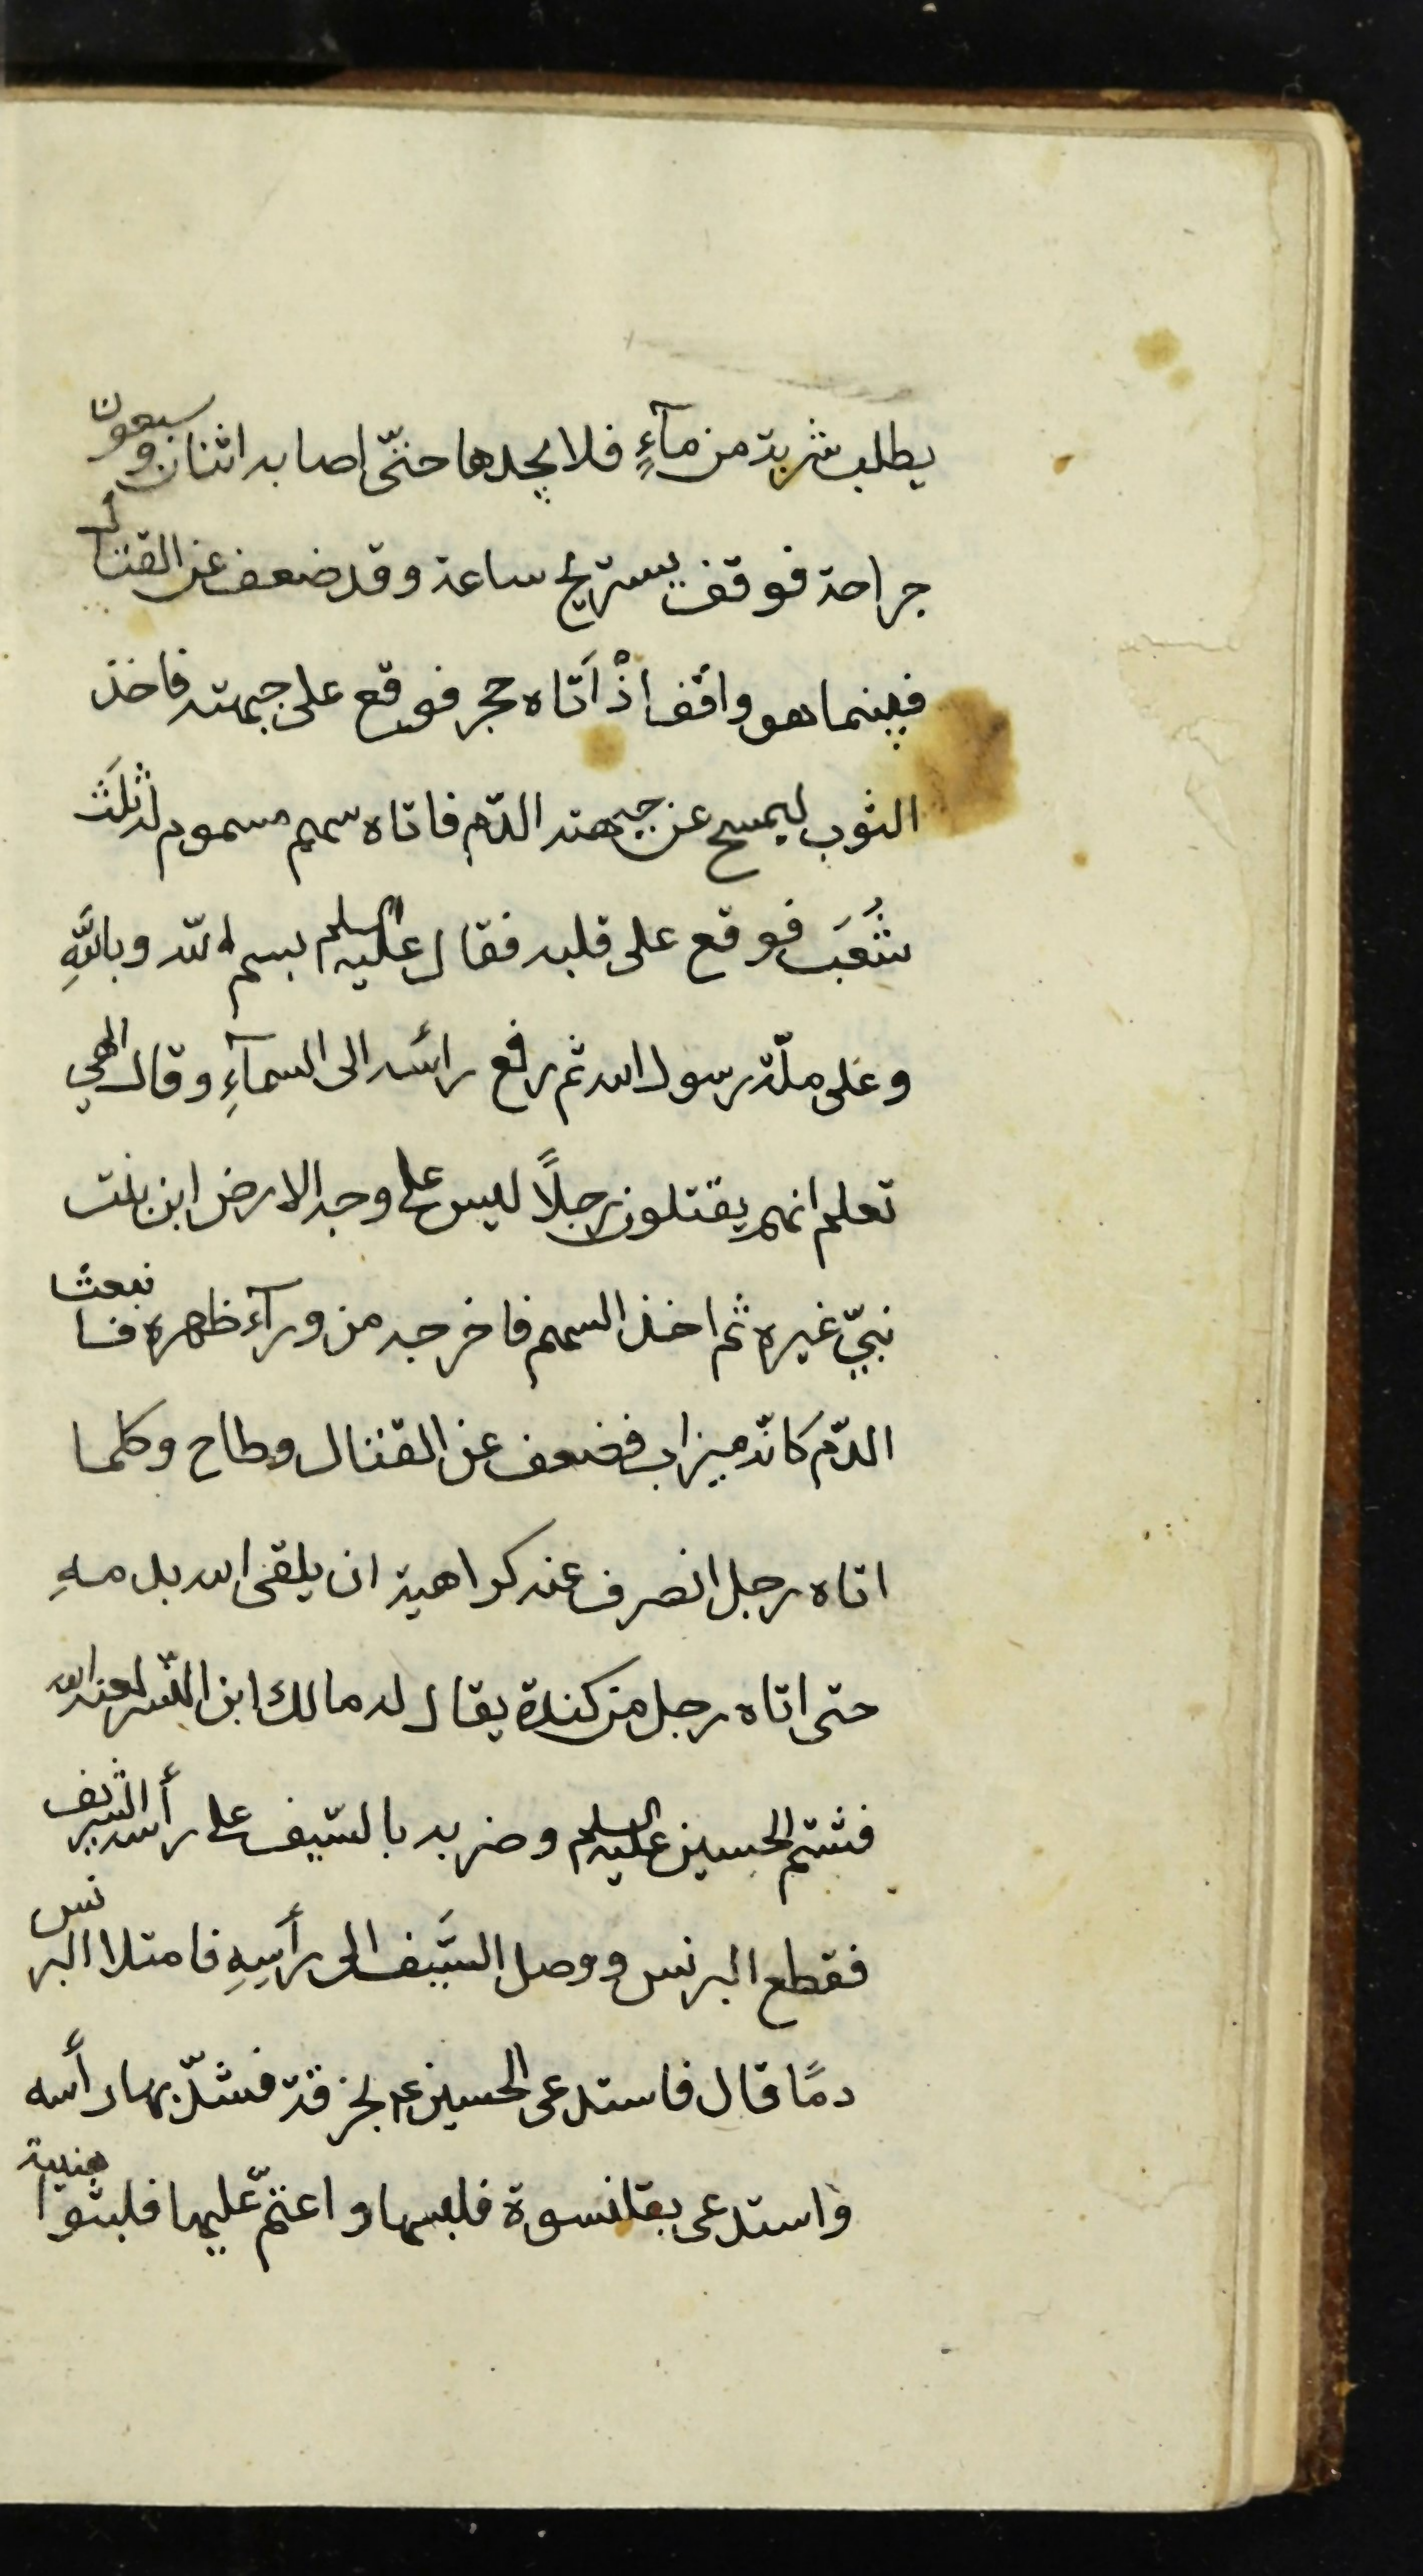 يطلب شربة من مآءٍ فلا يجدها حتّى اصابه اثنان وسبعون
جراحة فوقف يستريح ساعة وقد ضعف عن القتال
فبينما هو واقف اذْ اَتاه حجر فوقع على جبهته فاخذ
الثوب ليمسح عن جبهته الدّم فاتاه سهم مسموم له ثلَث
شُعَب فوقع على قلبه فقال عليه السلم بسم الله وباللَّهِ
وعلى ملّة رسول الله ثم رفع رأسه الى السمآءِ وقال الهي
تعلم انهم يقتلون رجلاً ليس على وجه الارض ابن بنت
نبيّ غيره ثم اخذ السهم فاخرجه من ورآء ظهره فانبعث
الدّم كانّه ميزاب فضعف عن القتال وطاح وكلما
اتاه رجل انصرف عنه كراهية ان يلقى الله بدمهِ
حتى اتاه رجل من كندة يقال له مالك ابن النسر لعنه الله
فشتم الحسين عليه السلم وضربه بالسّيف على رأسه الشريف
فقطع البرنس ووصل السَّيف الى رأسِهِ فامتلا البرنس
دمًا قال فاستدعى الحسين ع بخرقة فشدّ بها رأسه
واستدعى بقلنسوة فلبسها واعتمّ عليها فلبثوا هنيئة